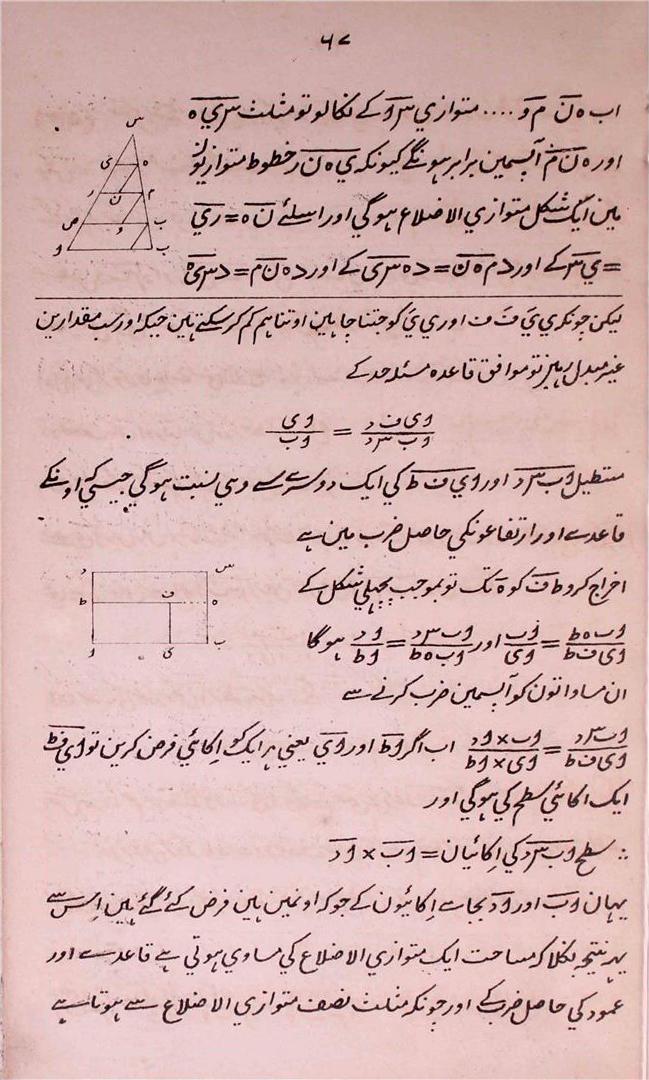 ۶۷
اب ہ ن م و .... متوازي س و کے نکالو تو مثلث س ي ہ
اور ہ ن م آپسمین برابر ہونگے کیونکہ ي ہ ن ر خطوط متوازیونکے
مین ایک شکل متوازي الاضلاع ہوگي اور اسلئے ن ہ = ر ي
= ي س کے اور د م ہ ن = د ہ س ی کے اور د ہ ن م = د س ی ہ
س
ی ہ
ر ن م
ص و ب
و ب
لیکن چونکہ ي يَ ف فَ اور ي يَ کو جتنا چاہین اوتنا ہم کم کر سکتے ہین جبکہ اور سب مقدارین
غیر مبدل رہین تو موافق قاعدہ مسئلہ حد کے
وی ف د / وب س د = وی / وب
مستطیل وب س د اور وي ف ط کي ایک دوسرے سے وہي نسبت ہوگي جیسي کہ اونکے
قاعدے اور ارتفاعونکي حاصل ضرب مین ہے
اخراج کرو ط ف کو ہ تک تو بموجب پچھلي شکل کے
د س
ط ف ہ
و ی ب
وب ہ ط / وی ف ط = وب / وی اور وب س د / وب ہ ط = ود / وط ہوگا
ان مساواتون کو آپسمین ضرب کرنے سے
وب س د / وی ف ط = وب × ود / وی × وط اب اگر وط اور وي یعني ہر ایک کو اکائي فرض کرین تو وي ف ط
ایک اکائي سطح کي ہوگي اور
∴ سطح وب س د کي اکائیان = وب × ود
یہان وب اور ود بجاے اکائیون کے جو کہ اونمین ہین فرض کئے گئے ہین اس سے
یہہ نتیجہ نکلا کہ مساحت ایک متوازي الاضلاع کي مساوي ہوتي ہے قاعدے اور
عمود کي حاصل ضرب کے اور چونکہ مثلث نصف متوازي الاضلاع سے ہوتا ہے